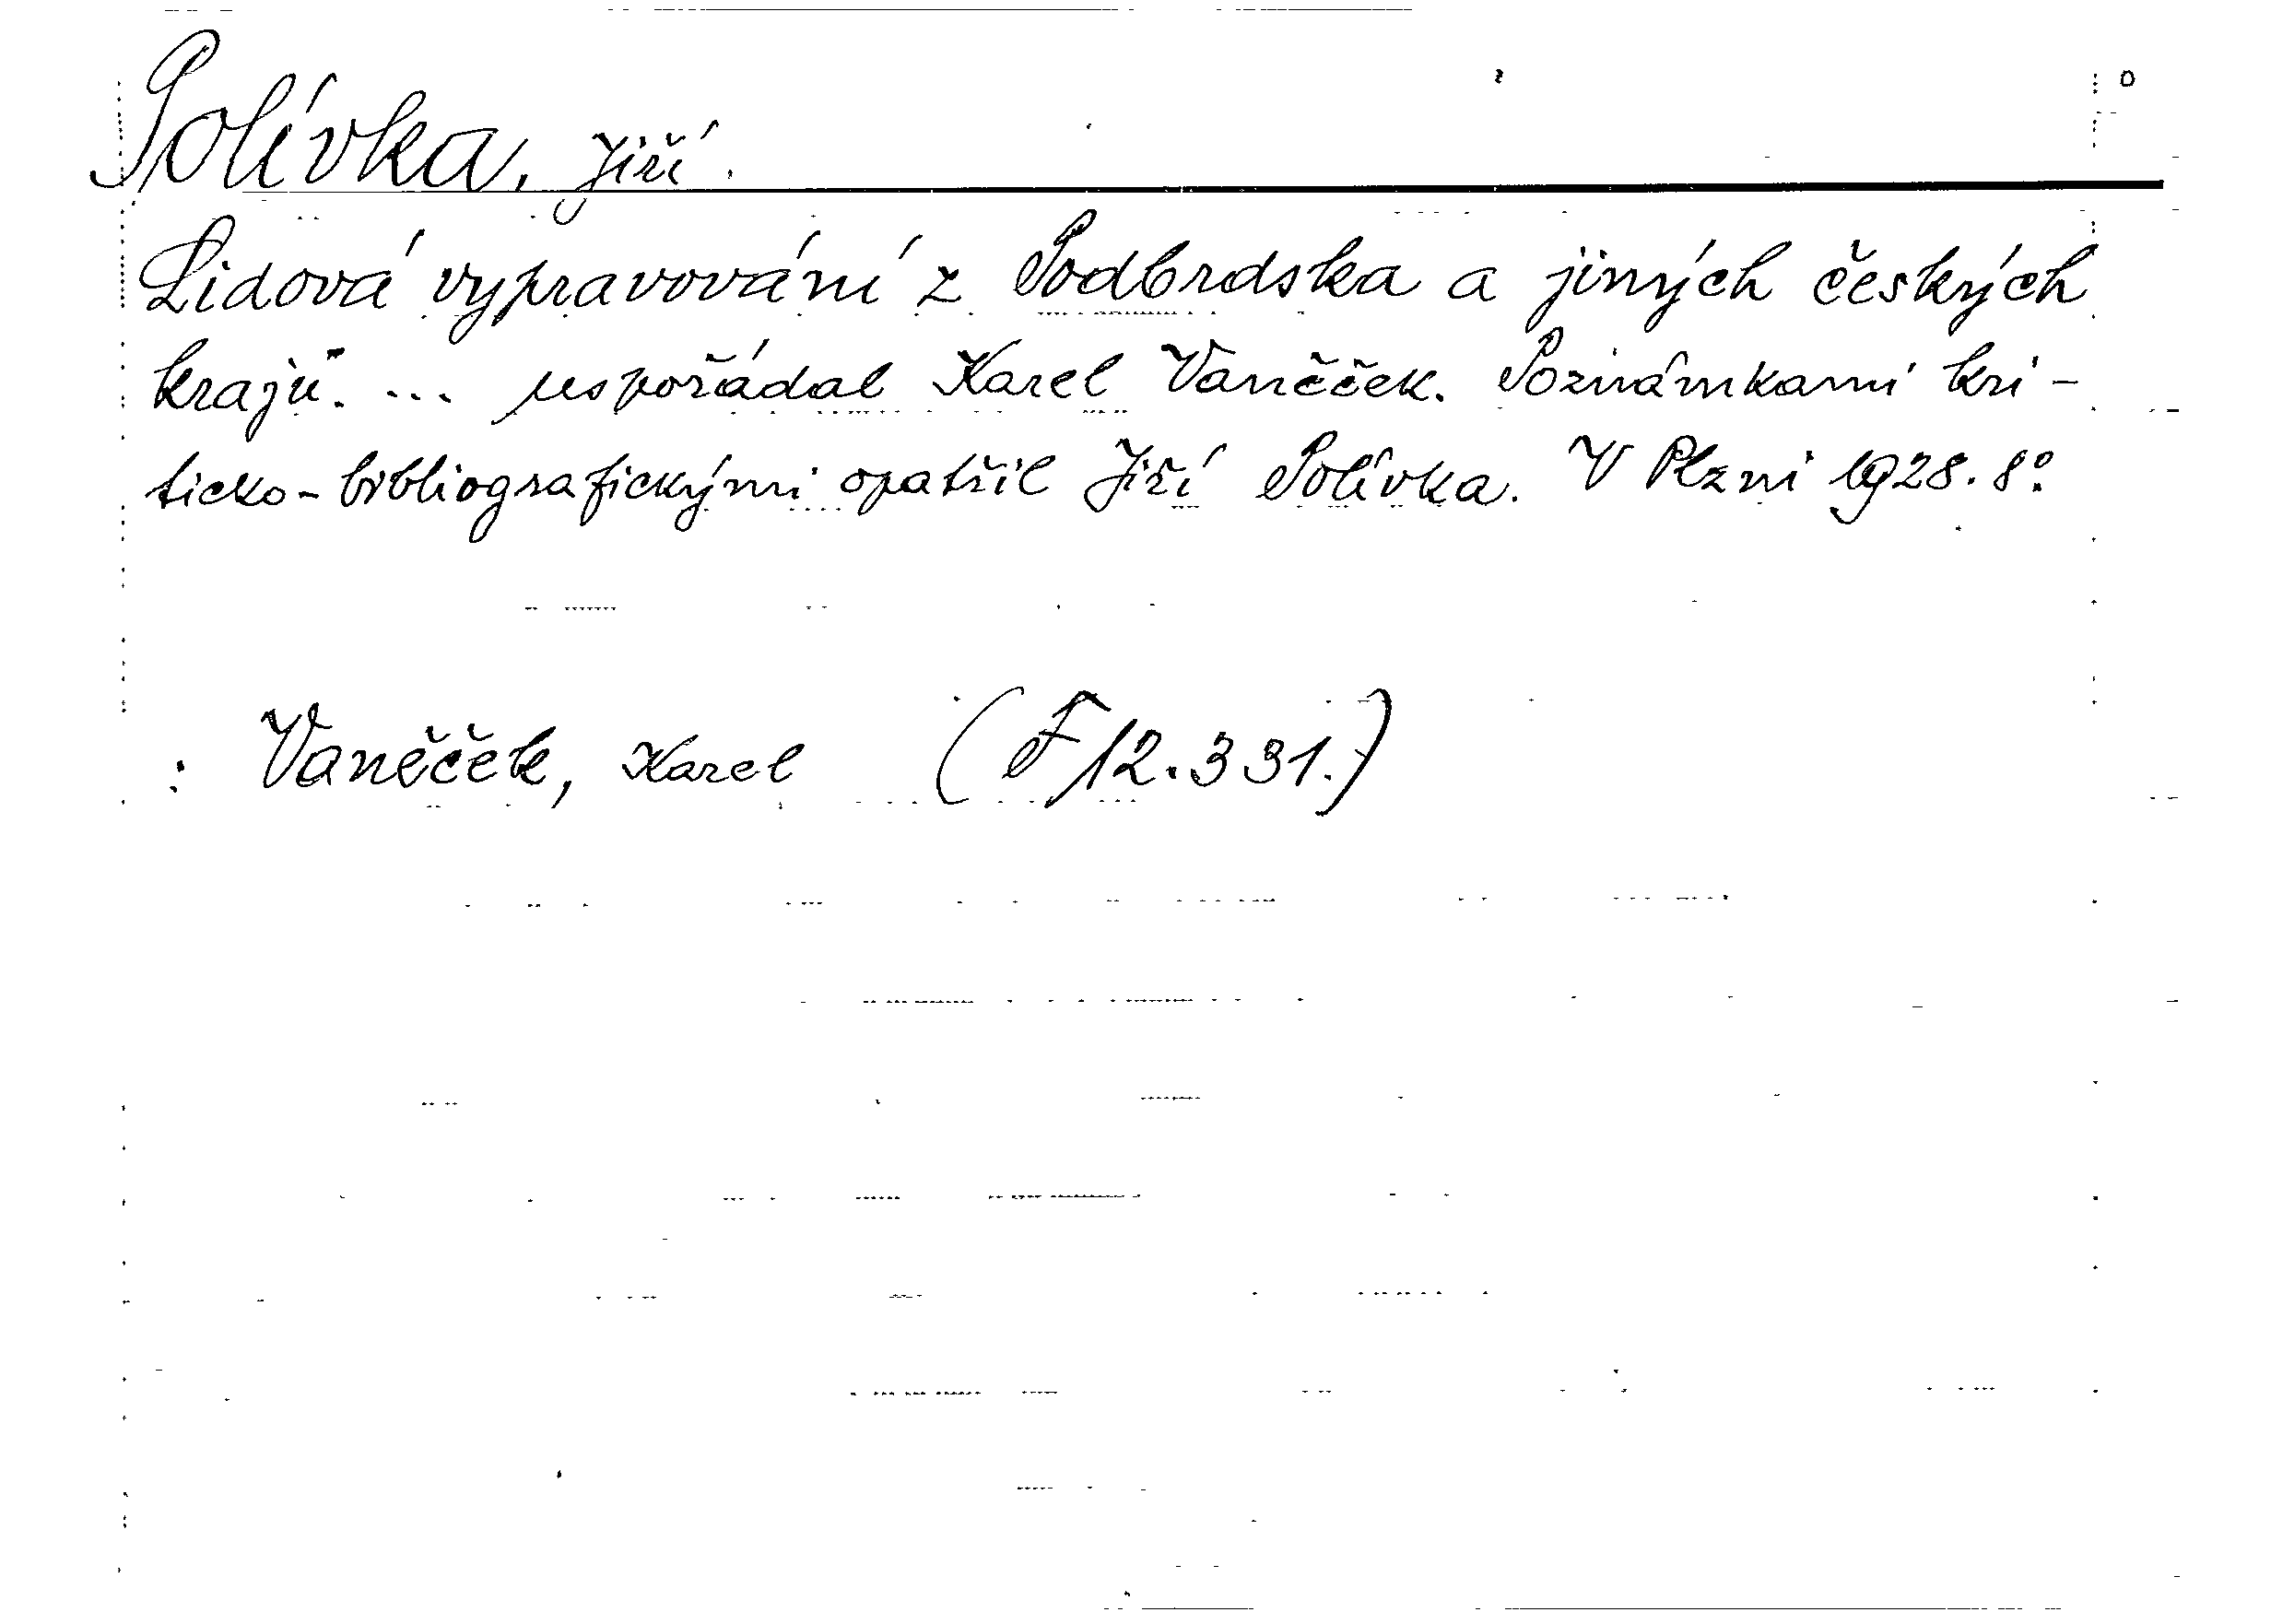 Polívka, Jiří.
Lidová vypravování z Podbrdska a jiných českých
krajů. ... uspořádal Karel Vaněček. Poznámkami kri-
ticko-bibliografickými opatřil Jiří Polívka. V Plzni 1928. 8°.
: Vaněček, Karel (F 12.331.)